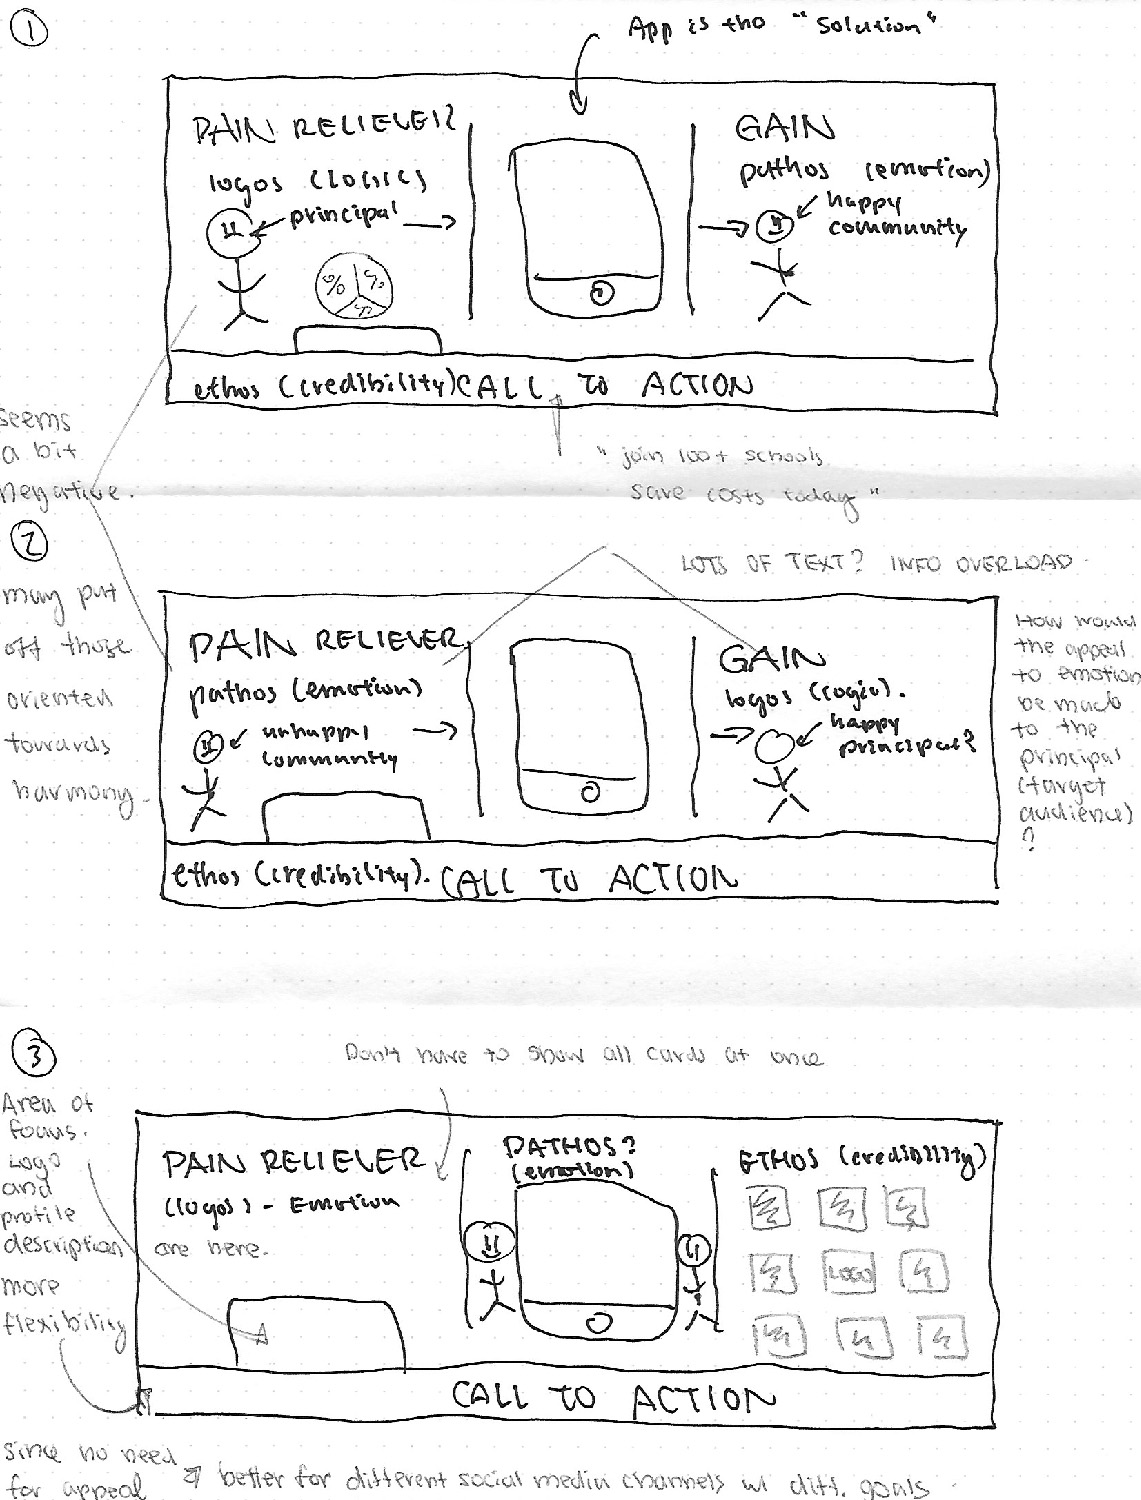 1
App is the "Solution"
PAIN RELIEVER?
logos (LOGIC)
principal
% % %
GAIN
pathos (emotion)
happy
community
ethos (credibility) CALL TO ACTION
"join 100+ schools
save costs today"
seems
a bit
negative.
may put
off those
oriented
towards
harmony.
2
LOTS OF TEXT? INFO OVERLOAD
PAIN RELIEVER
pathos (emotion)
unhappy
community
GAIN
logos (logic).
happy
principal?
ethos (credibility). CALL TO ACTION
How would
the appeal
to emotion
be made
to the
principal
(target
audience)
?
3
Don't have to show all cards at once
Area of
focus.
Logo
and
profile
description
more
flexibility
since no need
for appeal
PAIN RELIEVER
(logos) - Emotion
are here.
PATHOS?
(emotion)
ETHOS (credibility)
LOGO
CALL TO ACTION
better for different social media channels w/ diff. goals.